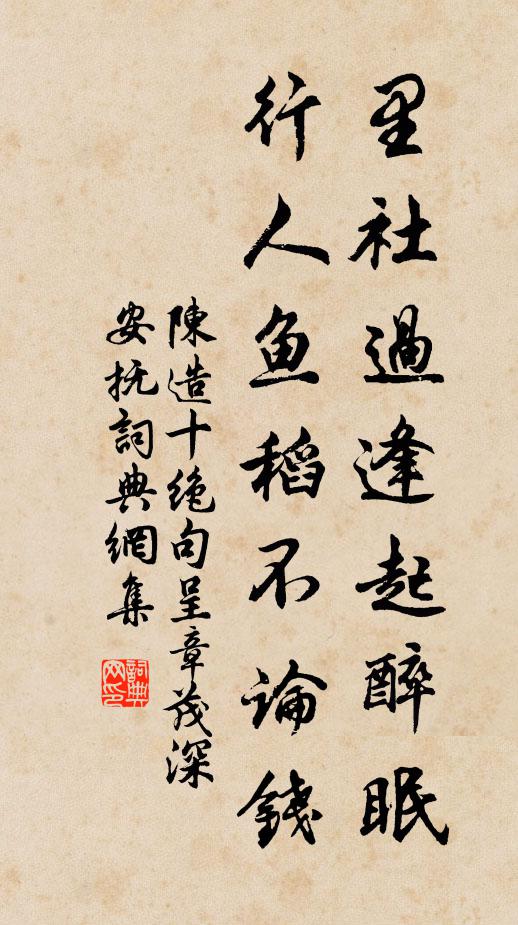 里社過逢起醉眠
行人鱼稻不論錢
陳造十绝句呈章茂深
安抚詞典網集
詞典网印